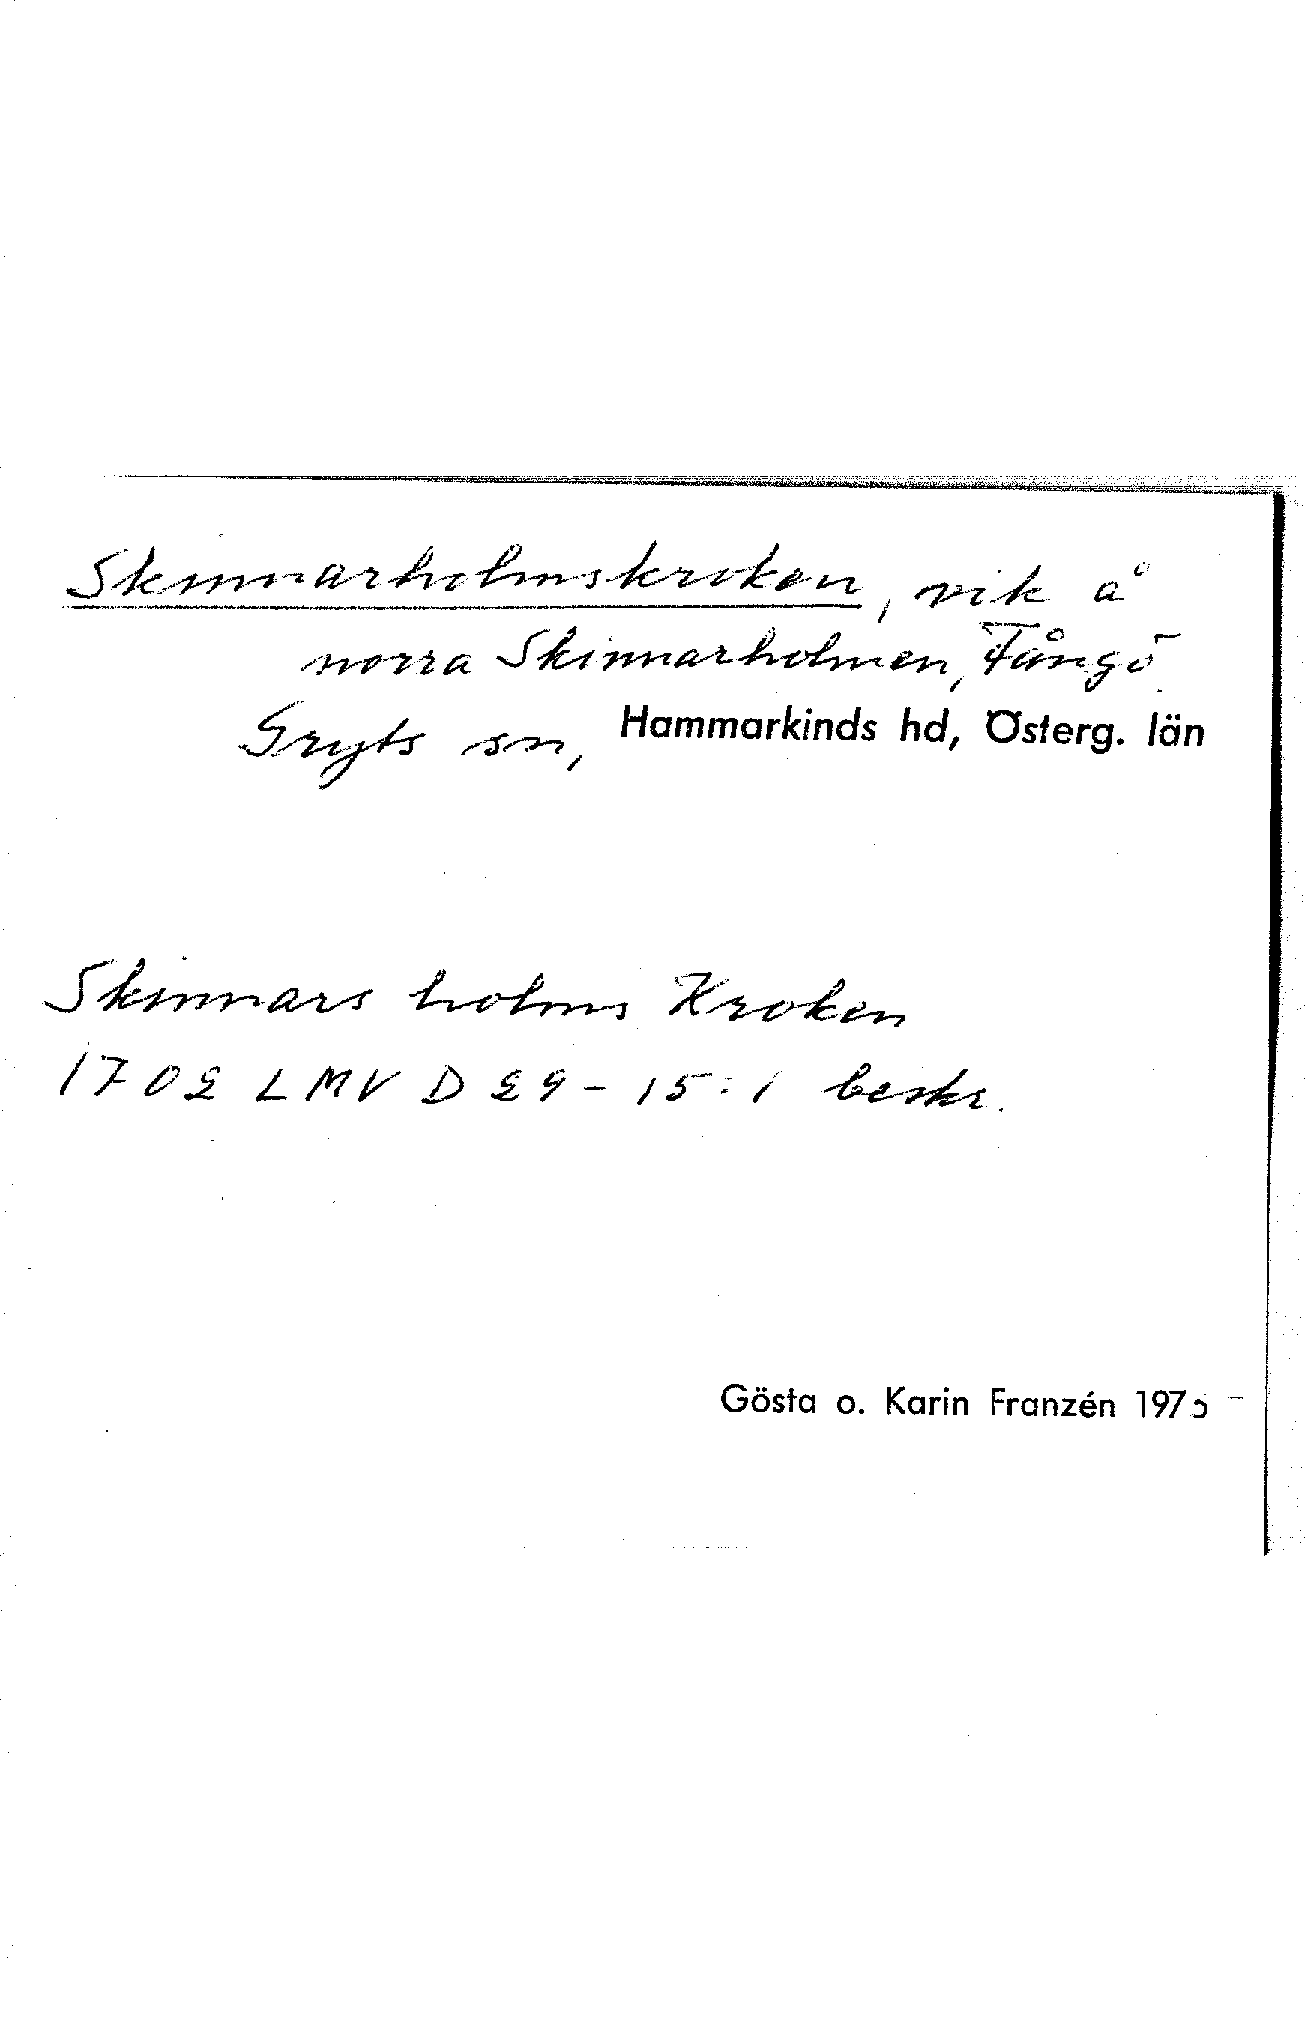 Skinnarholmskroken, vik å
norra Skinnarholmen, Fångö
Gryts sn, Hammarkinds hd, Österg. län
Skinnars holms Kroken
1702 LMV D 29-15:1 beskr.
Gösta o. Karin Franzén 1975